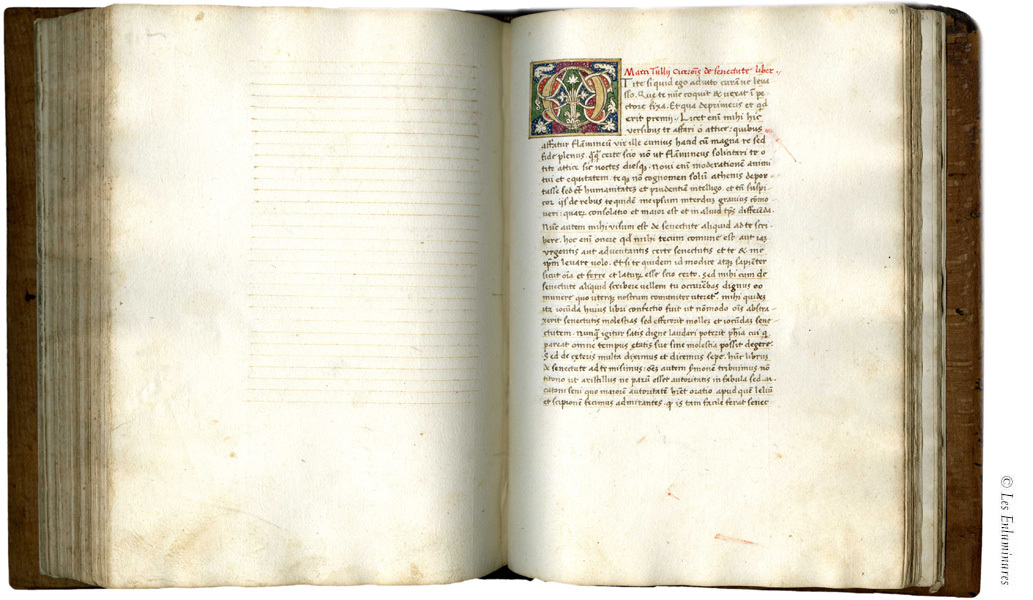 Marci Tullij Ciceroīs de senectute liber
Tite si quid ego adiuto curāue leua
sso. Que te nūc coquit & uexat ī pe
ctore fixa. Et qua deprimeris et qd
erit premij. Licet enī mihi hic
uersibus te affari o attice: quibus
affatur flāmineū uir ille ennius haud cū magna re sed
fide plenus. certe scio nō ut flāmineus solicitari te o
tite attice sic noctes diesq. Noui enī moderationē animi
tui et equitatem. teq nō cognomen solū athenis depor
tasse sed et humanitatez et prudentiā intelligo. et tn̄ suspi
cor ijs de rebus te quidē meipsum interdū grauius cōmo
ueri: quarz consolatio et maior est et in aliud tps differēda.
Nūc autem mihi uisum est de senectute aliquid ad te scri
bere. hoc enī onere qd mihi tecum comune est aut iaz
urgentis aut aduentantis certe senectutis et te & me
ipm leuare uolo. Et si te quidem id modice atqz sapienter
sicut oīa et ferre et laturz esse scio certo. Sed mihi cum de
senectute aliquid scribere uellem tu occurebas dignus eo
munere quo uterqz nostrum comuniter uteret. mihi quidez
ita iocūda huius libri confectio fuit ut nōmodo oīs abstra
xerit senectutis molestias sed effecerit molles et iocūdaz senec
ctutem. Nunq̄ igitur satis digne laudari poterit phīa cui q
pareat omne tempus etatis sue sine molestia possit degere.
Sed de ceteris multa diximus et dicemus sepe. hūc librum
de senectute ad te misimus: oēz autem sermonē tribuimus nō
titono ut aristillus ne parū esset autoritatis in fabula sed .m.
catoni seni quo maiorē autoritatē hret oratio apud quē leliū
et scipionē facimus admirantes. q is tam facile ferat senec
© Les Enluminures